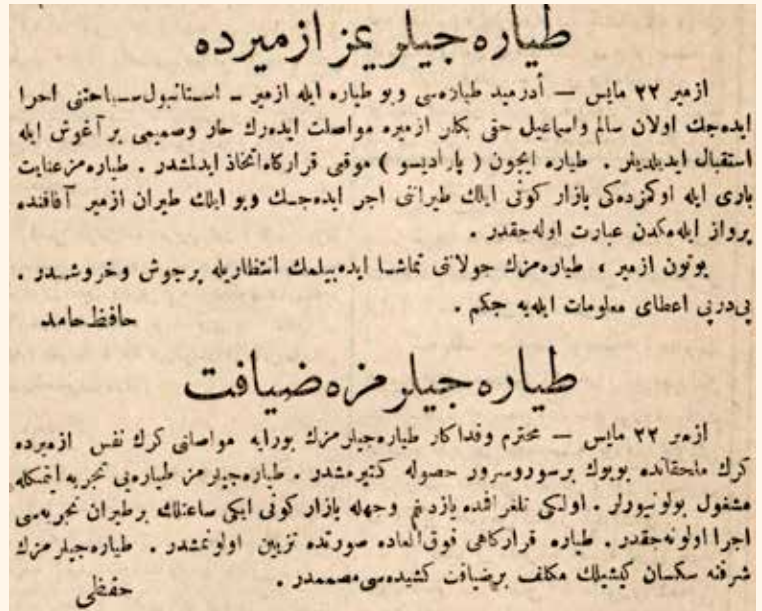 طياره‌جيلريمز ازميرده
ازمير ٢٢ مايس — أدرميد طياره‌سى وبو طياره ايله ازمير ـ استانبول سياحتنى اجرا
ايده‌جك اولان سالم واسماعيل حقى بكلر ازميره مواصلت ايده‌رك حار وصميمى بر آغوش ايله
استقبال ايديلديلر . طياره ايچون ( پاراديسو ) موقعى قراركاه اتخاذ ايدلمشدر . طياره‌مز عنايت
بارى ايله اوكمزده‌كى بازار كونى ايلك طيراننى اجر ايده‌جك وبو ايلك طيران ازمير آفاقنده
پرواز ايله‌مكدن عبارت اوله‌جقدر .
بوتون ازمير ، طياره‌مزك جولاننى تماشا ايده‌بيلمك انتظاريله پرجوش وخروشدر .
پى‌درپى اعطاى معلومات ايله‌يه جكم .
حافظ حامد
طياره‌جيلرمزه ضيافت
ازمير ٢٢ مايس — محترم وفداكار طياره‌جيلرمزك بورايه مواصلتى كرك نفس ازميرده
كرك ملحقاتده بويوك برسور وسرور حصوله كتيرمشدر . طياره‌جيلرمز طياره‌يى تجربه ايتمكله
مشغول بولونيورلر . اولكى تلغرافمده يازديغم وجهله بازار كونى ايكى ساعتلك بر طيران تجربه‌سى
اجرا اولونه‌جقدر . طياره قراركاهى فوق‌العاده صورتده تزيين اولونمشدر . طياره‌جيلرمزك
شرفنه سكسان كيشيلك مكلف برضيافت كشيده‌سى مصممدر .
حفظى